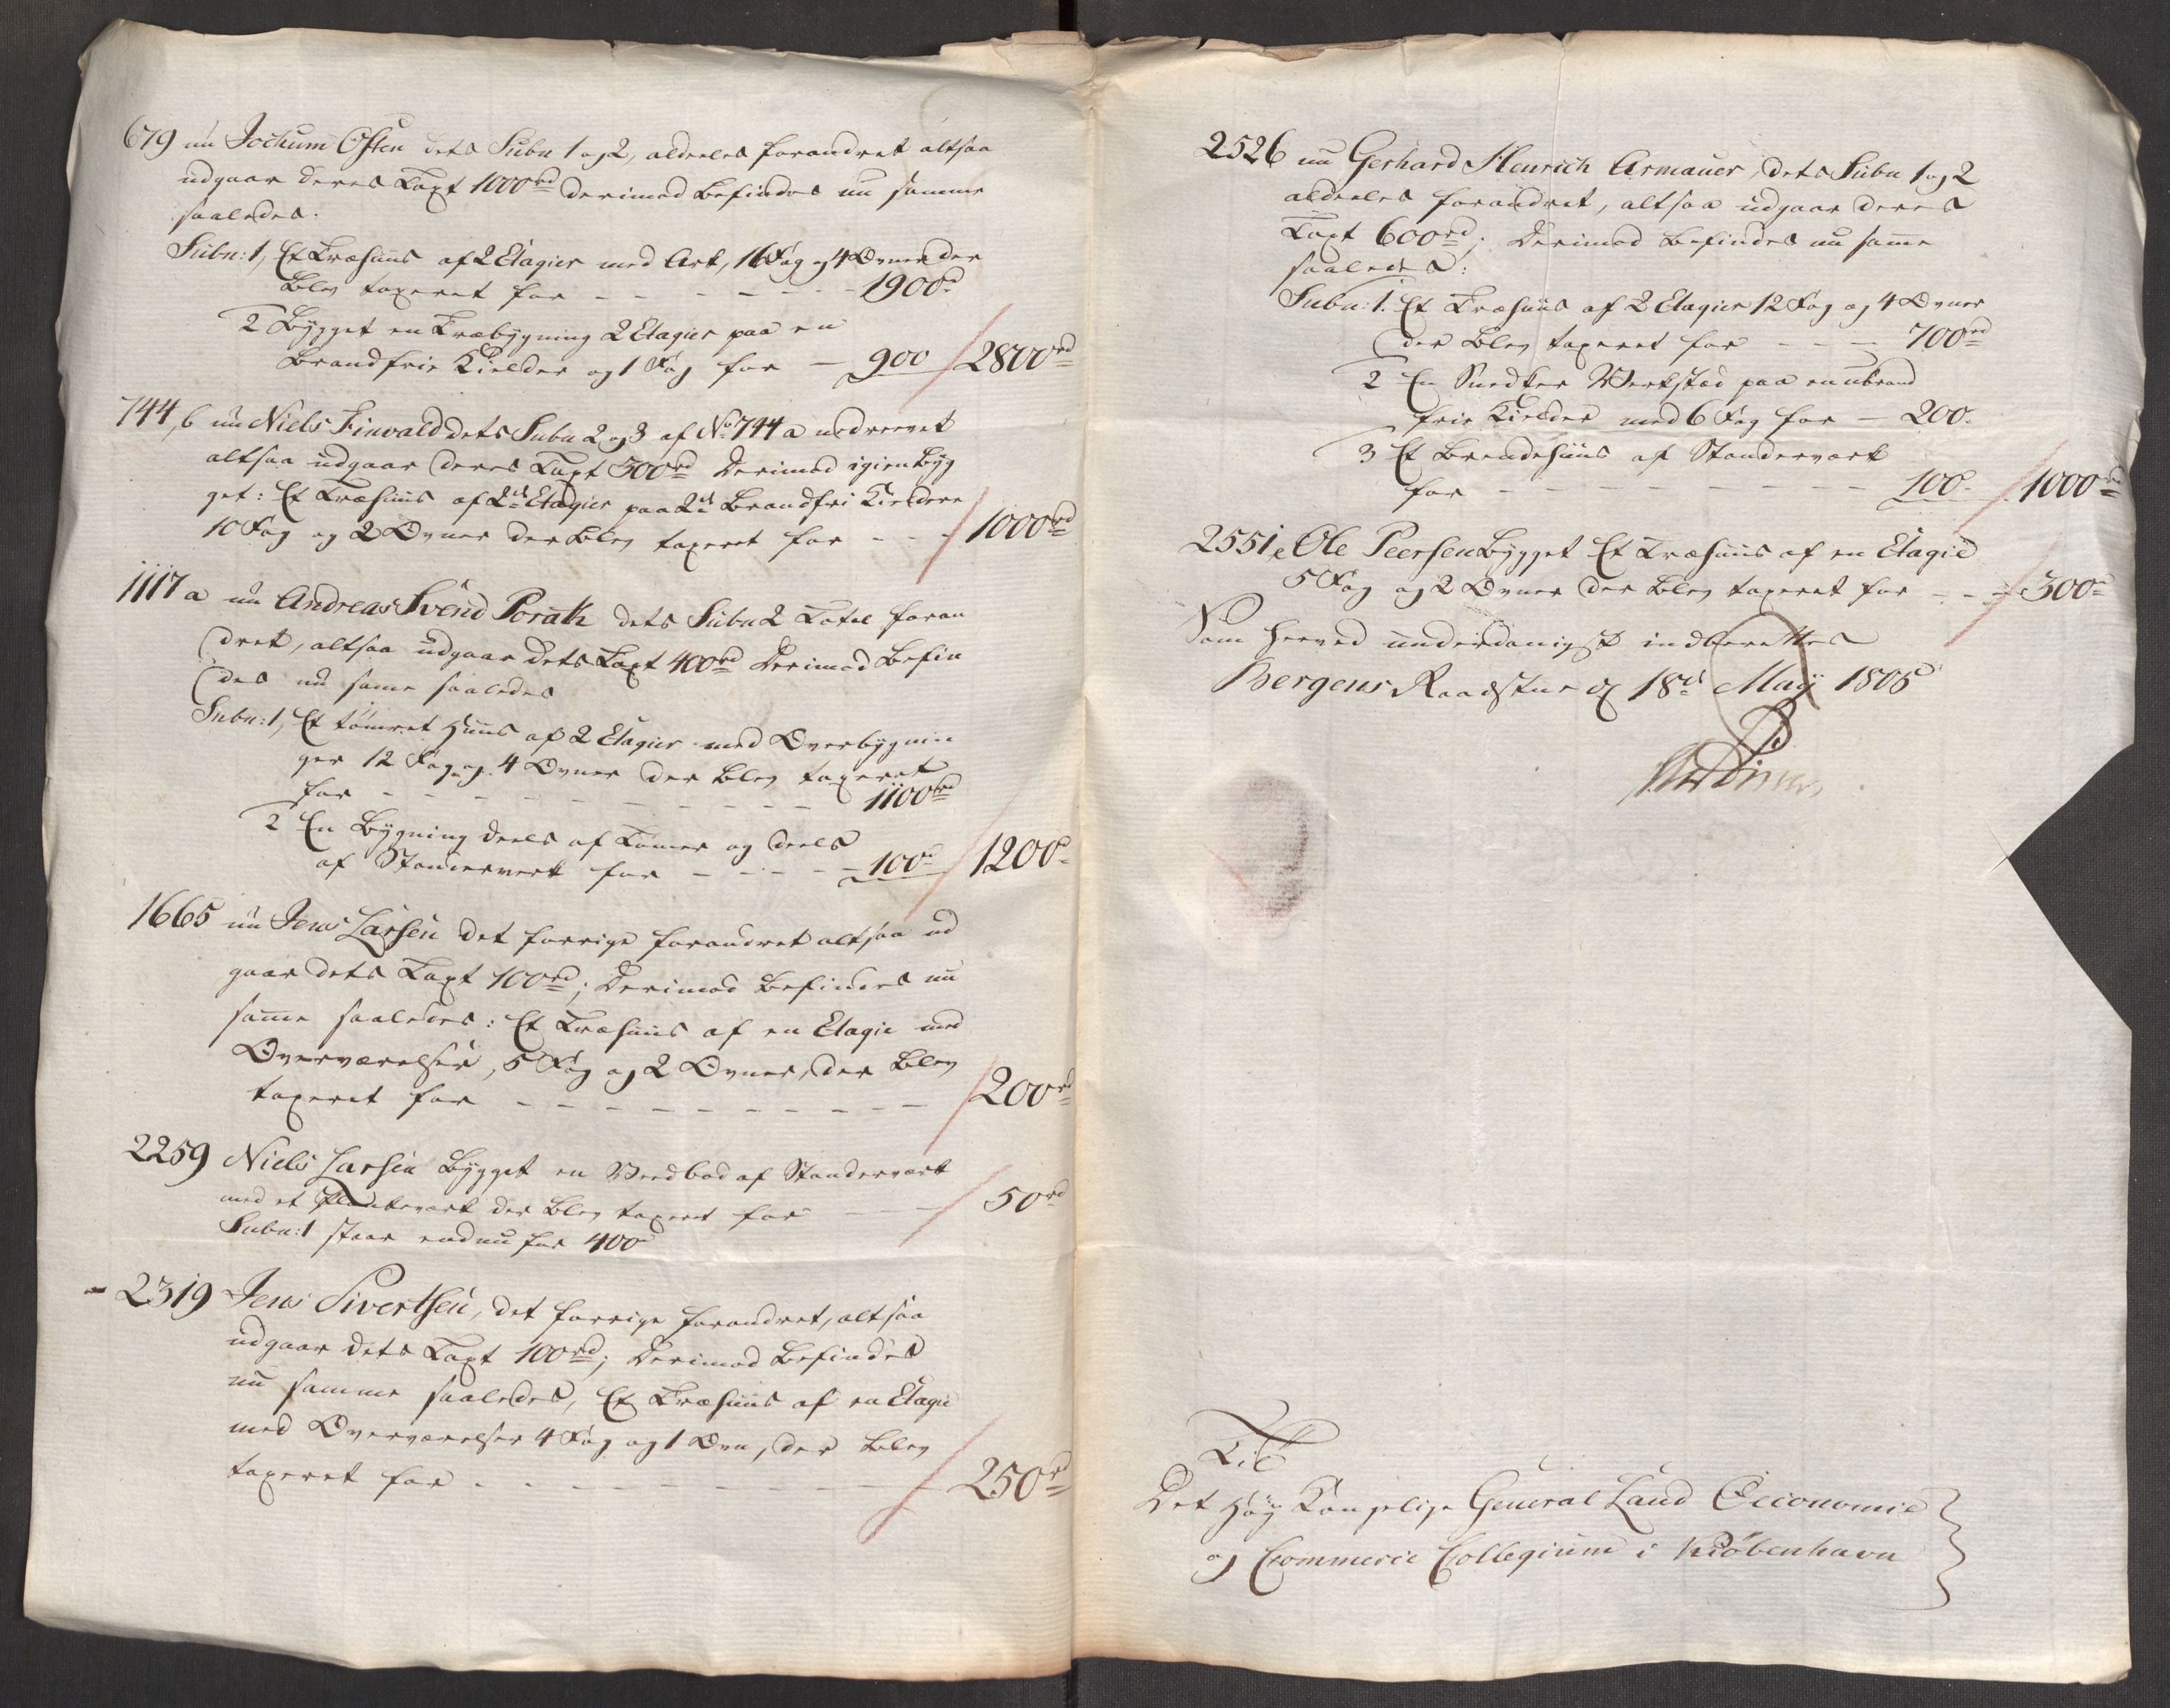 679 nu Jochum Osten dets Subn 1 og 2, aldeeles forandret altsaa
udgaar deres Taxt 1000rd derimod befindes nu samme
saaledes:
Subn: 1, Et Træhuus af 2 Etagier med Ark, 16 Fag og 4 Ovner der
blev taxeret for - - - - - - 1900rd
2 Bygget en Træbygning 2 Etagier paa en
brandfrie Kielder og 1 Fag for - 900 / 2800rd
744, b nu Niels Finvald dets Subn 2 og 3 af No 744 a nedrevet
altsaa udgaar deres Taxt 500rd Derimod igien byg
get: Et Træhuus af 2de Etagier paa 2de Brandfri Kieldere
10 Fag og 2 Ovner der blev taxeret for - - - 1000rd
1117 a nu Andreas Svend Porath dets Subn 2 Total foran
dret, altsaa udgaar dets Taxt 400rd Derimod befin
des nu same saaledes
Subn: 1, Et tømret Huus af 2 Etagier med Overbygnin
ger 12 Fag og 4 Ovner der blev taxeret
for - - - - - - - - - 1100rd
2 En Bygning deels af Tømer og deels
af Standerverk for - - - - - 100rd / 1200rd
1665 nu Jens Larsen det forrige forandret altsaa ud
gaar dets Taxt 100rd; Derimod befindes nu
same saaledes: Et Træhuus af en Etagie med
Overværelser, 5 Fag og 2 Ovner, der blev
taxeret for - - - - - - - - - - 200rd
2259 Niels Larsen bygget en Veedbod af Standerværk
med et der blev taxeret for - - 50rd
Subn: 1 staar endnu for 400rd
2319 Jens Sivertsen, det forrige forandret, altsaa
udgaar dets Taxt 100rd; Derimod befindes
nu samme saaledes, Et Træhuus af en Etagie
med Overværelser 4 Fag og 1 Ovn, der blev
taxeret for - - - - - - - - - 250rd
2526 nu Gerhard Henrich Armauer, dets Subn 1 og 2
aldeeles forandret, altsaa udgaar deres
Taxt 600rd; Derimod befindes nu same
saaledes:
Subn: 1. Et Træhuus af 2 Etagier 12 Fag og 4 Ovner
der blev taxeret for - - - 700rd
2 En Snedker Verksted paa en ubrand
frie Kielder med 6 Fag for - 200.
3 Et Brendehuus af Standerværk
for - - - - - - - - 100. / 1000rd
2551 e Ole Peersen bygget Et Træhuus af en Etagie
5 Fag og 2 Ovner der blev taxeret for - - - 300rd
Som herved underdanigst indberettes
Bergens Raadstue d 18de Maij 1805

Til
Det Høy Kongelige General Land Oeconomie
og Commerce Collegium i Kiøbenhavn